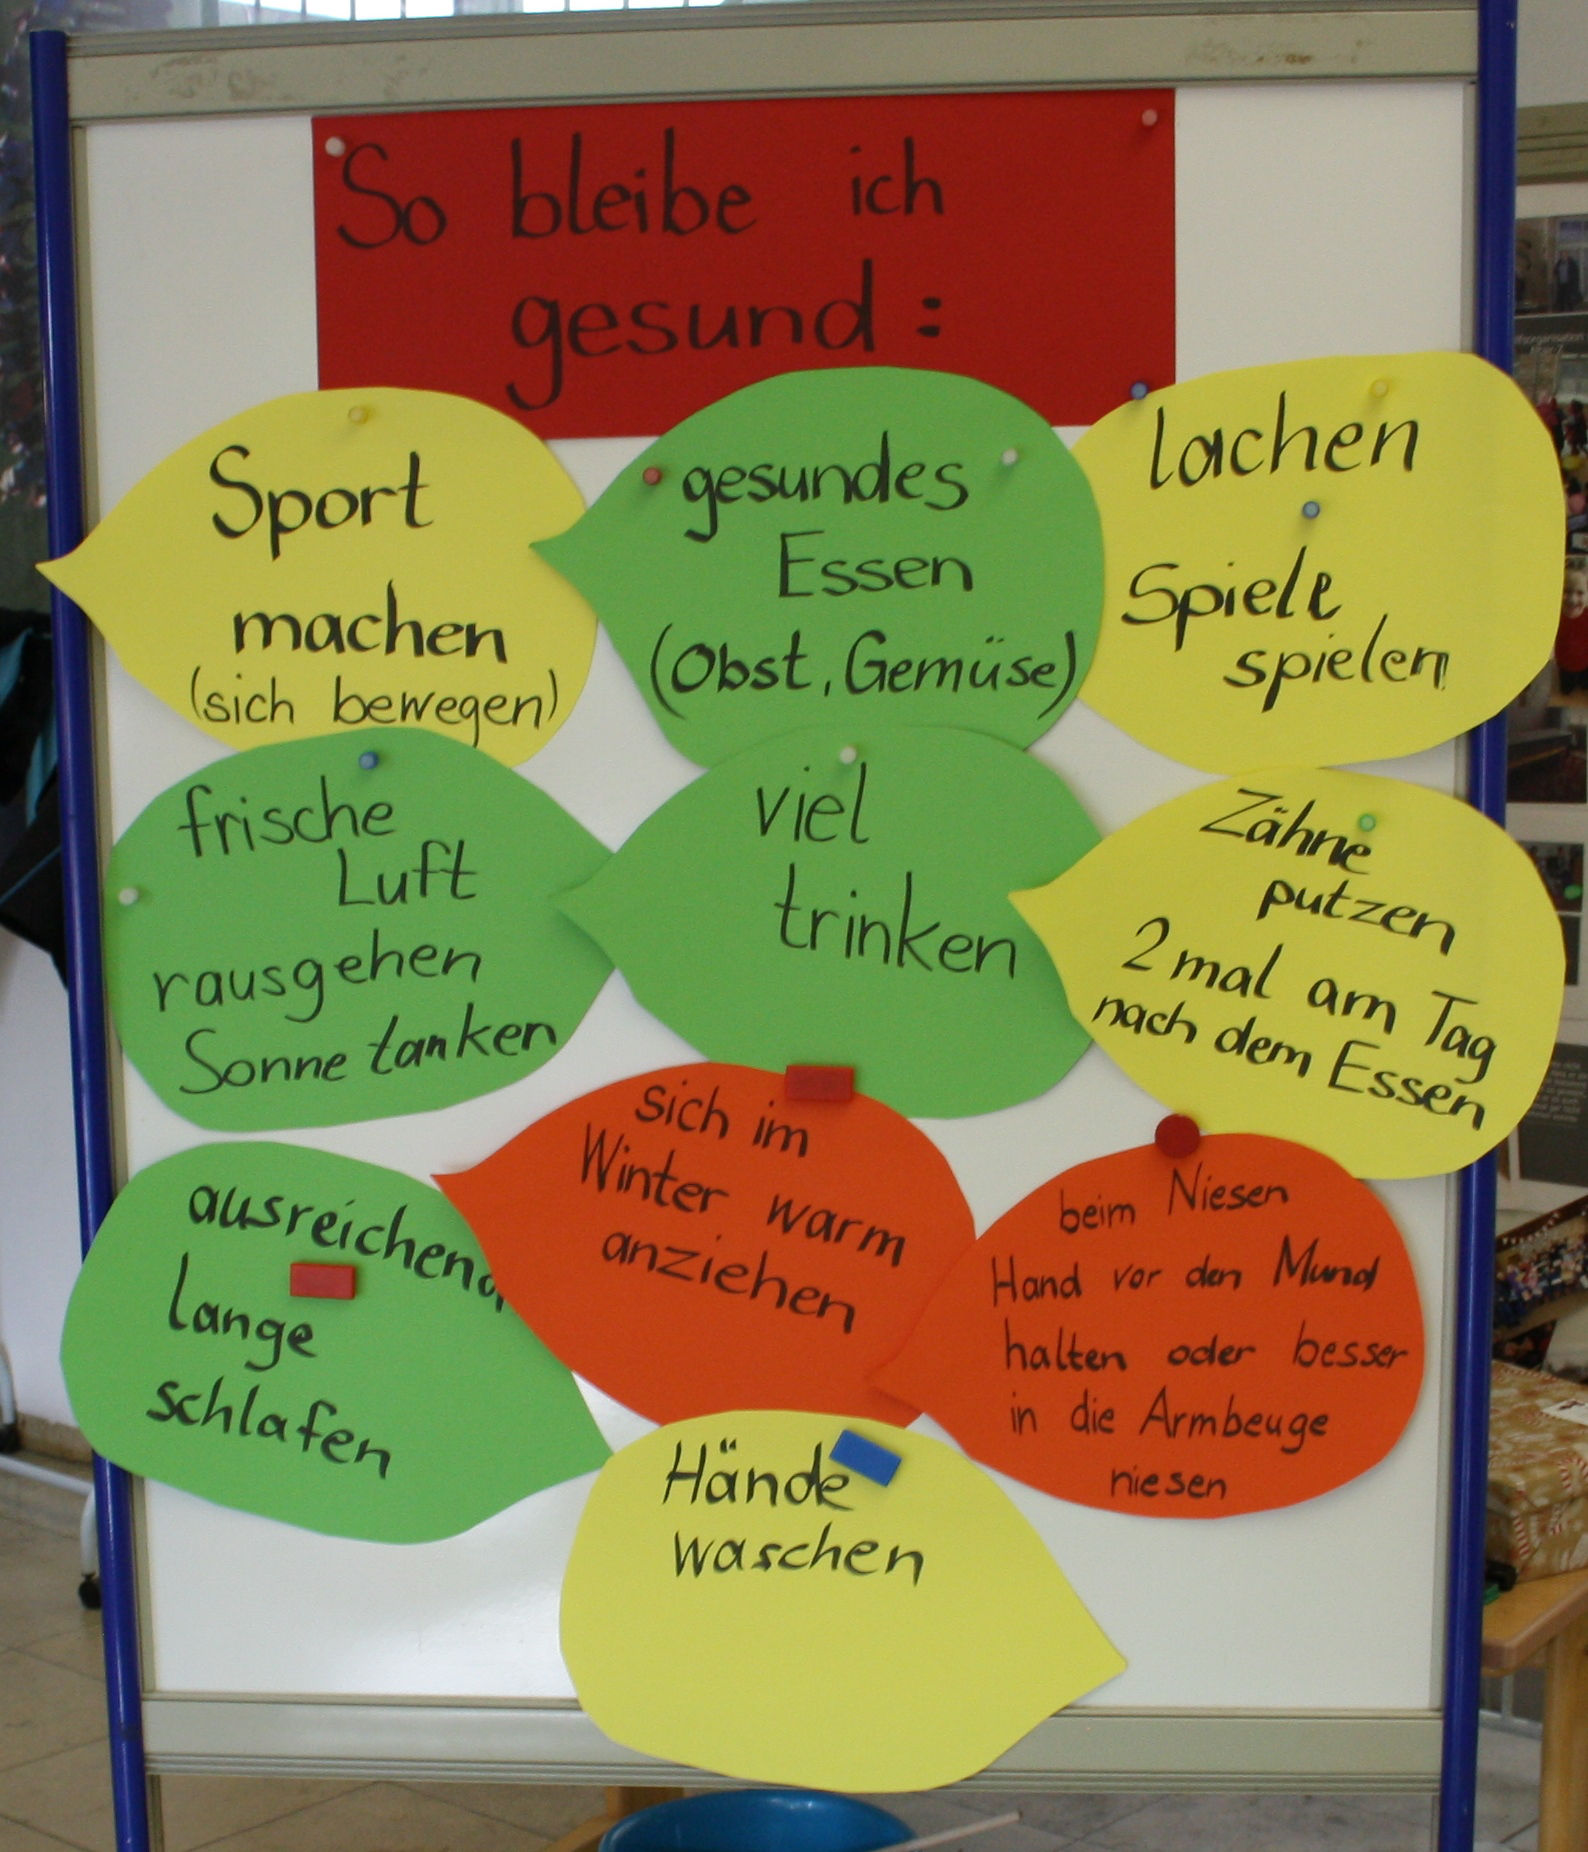 So bleibe ich
gesund:
Sport
machen
(sich bewegen)
gesundes
Essen
(Obst, Gemüse)
lachen
Spiele
spielen
frische
Luft
rausgehen
Sonne tanken
viel
trinken
Zähne
putzen
2 mal am Tag
nach dem Essen
ausreichend
lange
schlafen
sich im
Winter warm
anziehen
beim Niesen
Hand vor den Mund
halten oder besser
in die Armbeuge
niesen
Hände
waschen